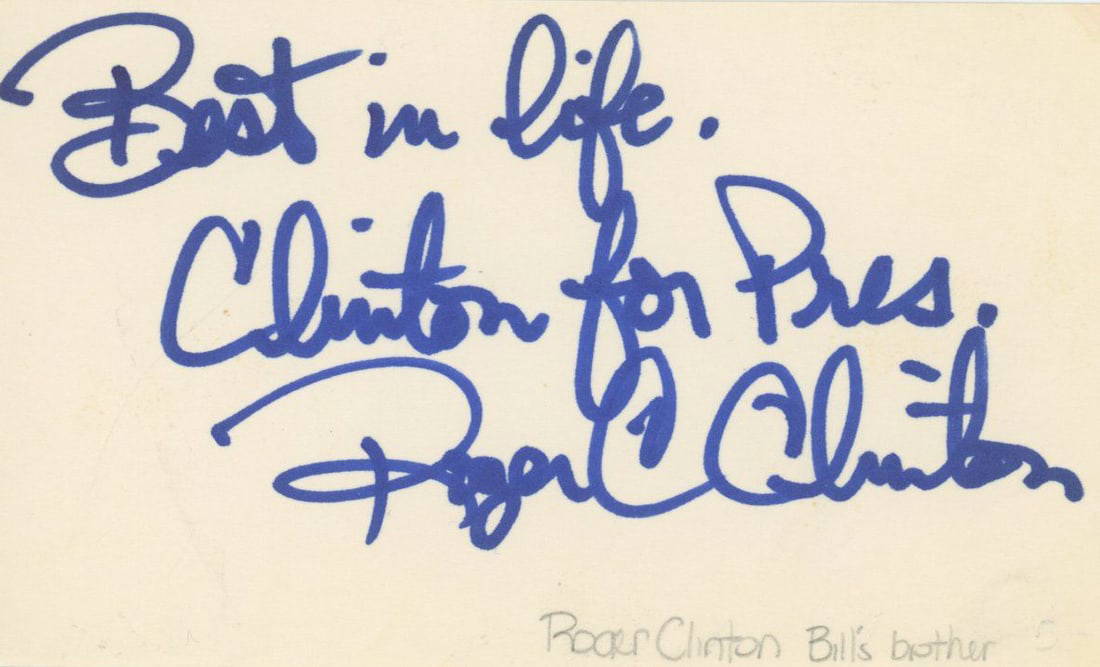 Best in life.
Clinton for Pres.
Roger C Clinton
Roger Clinton Bill's brother